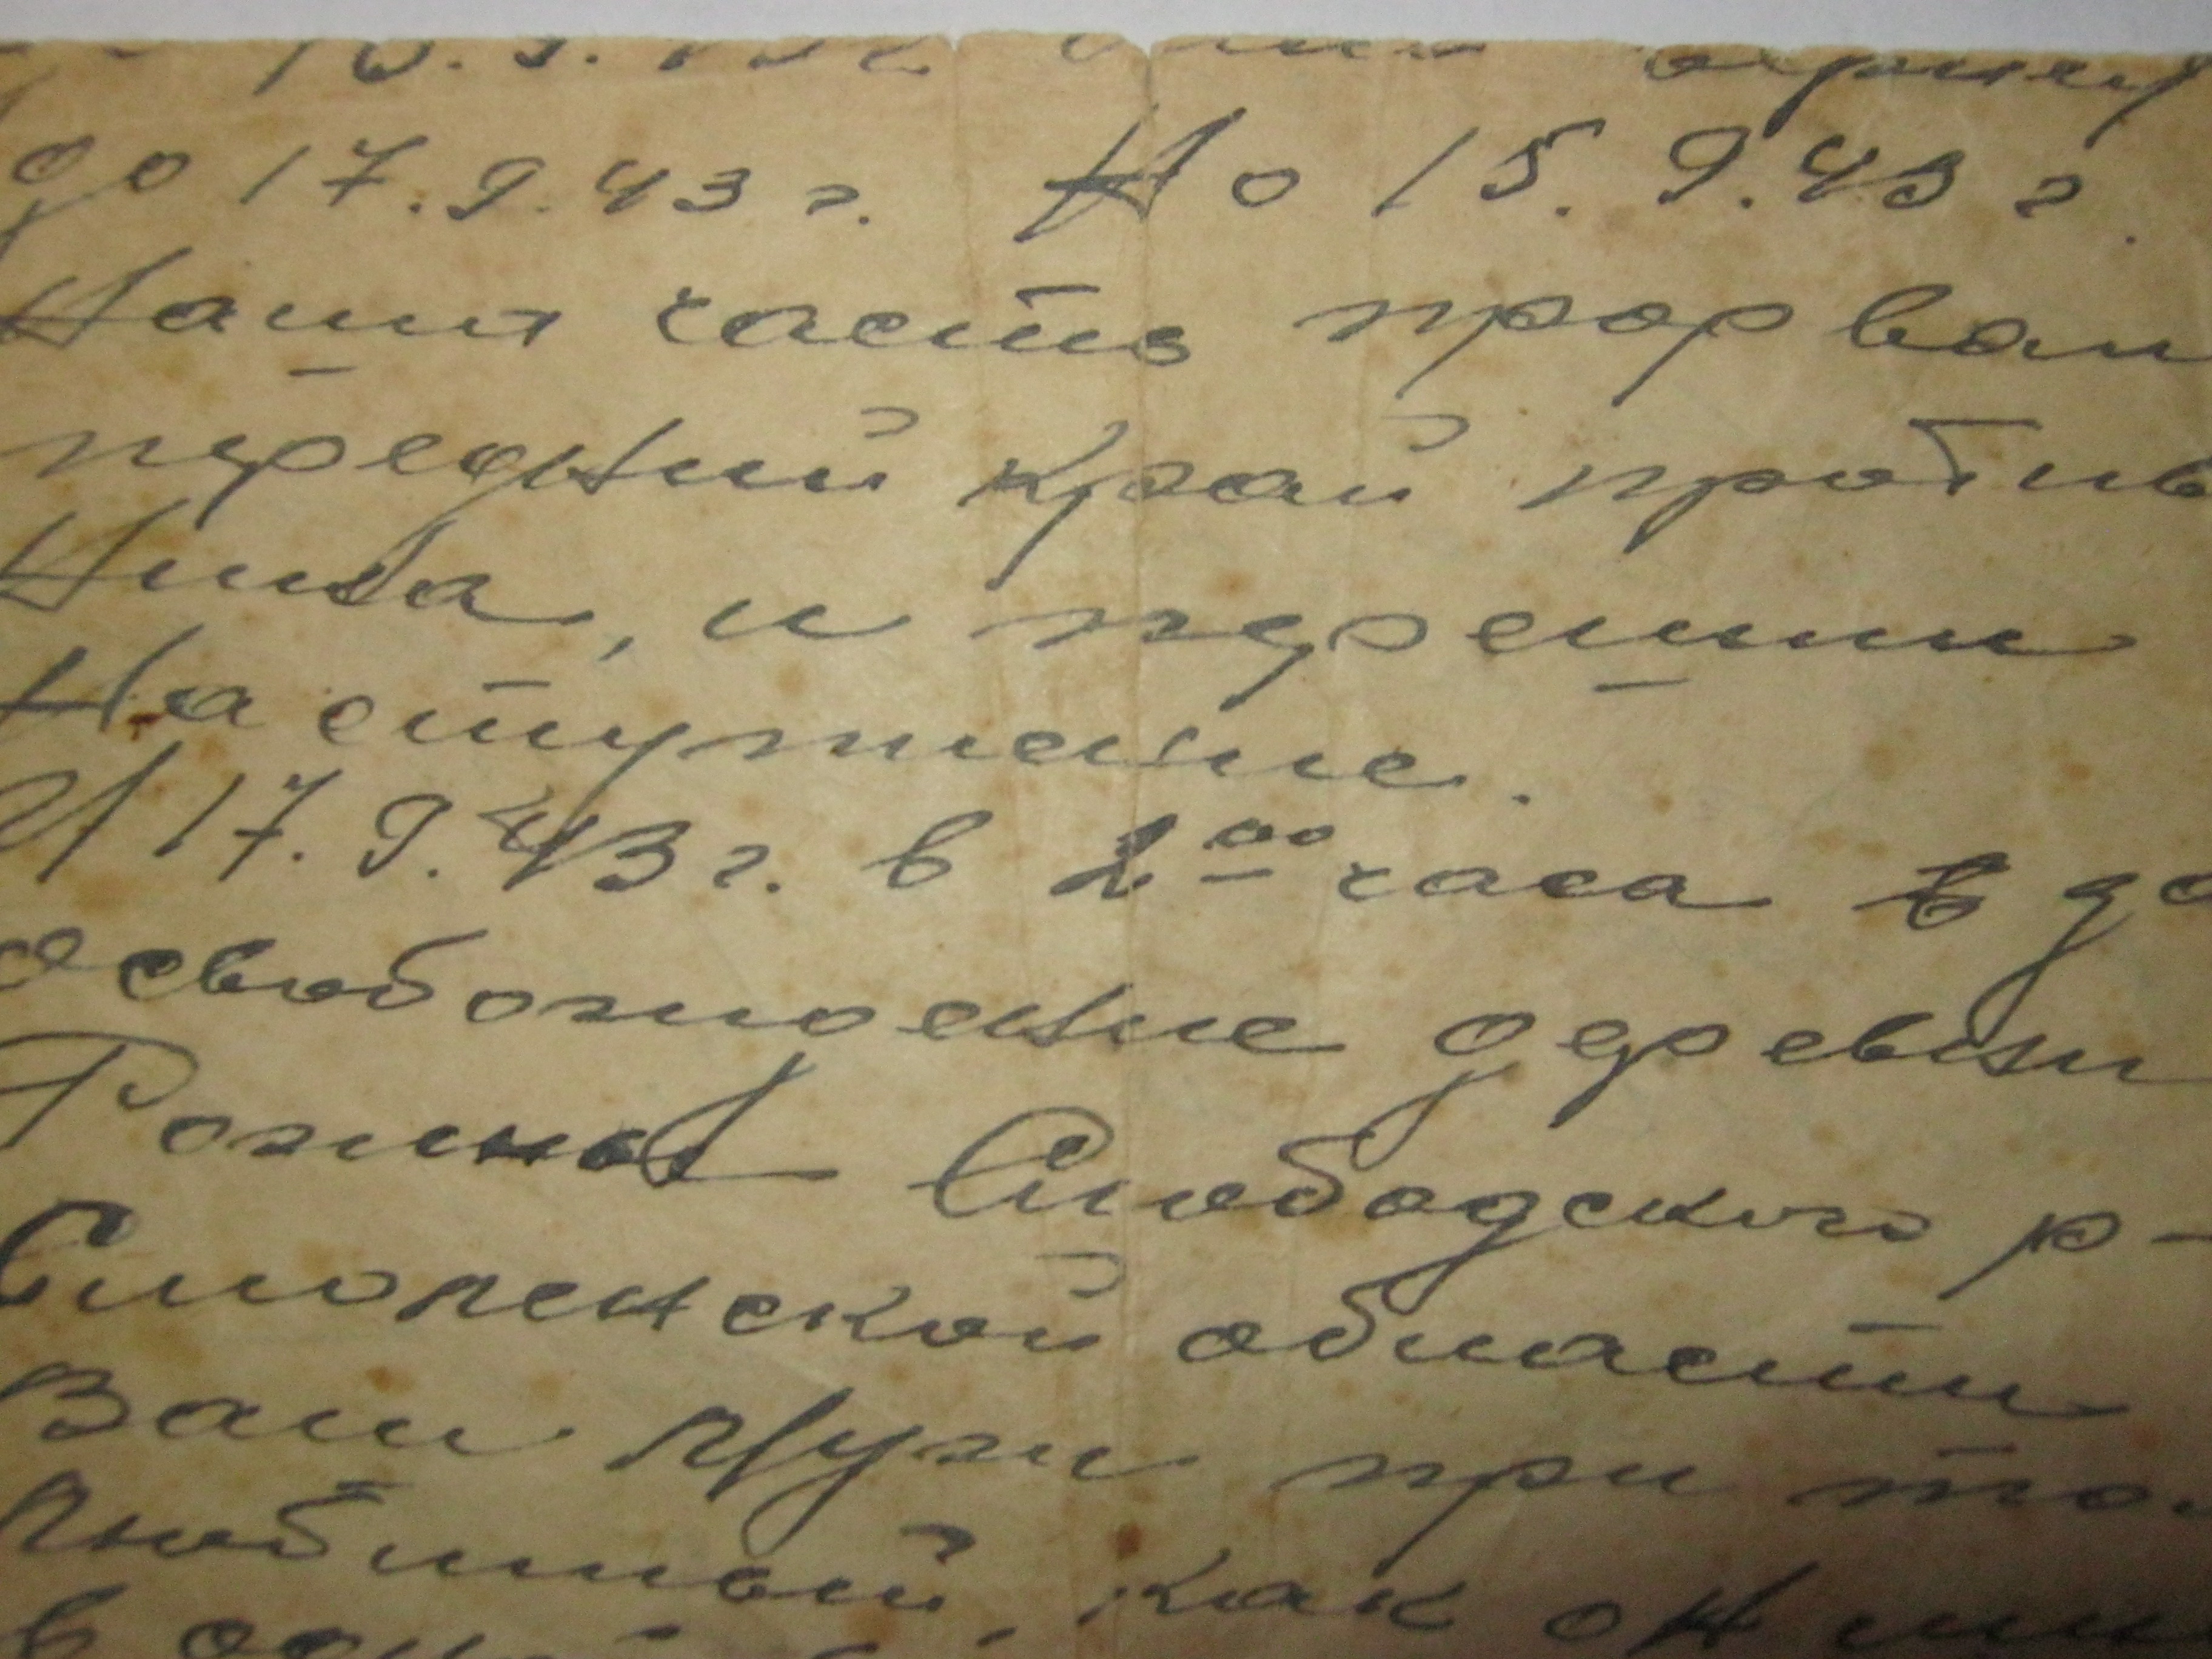 до 17.9.43 г. Но 15.9.43 г.
Наши часть прорвали
передний край против
ника, и перешли
Наступление.
И 17.9.43 г. в 2⁰⁰ часа в
освобождение деревни
Рожны Слободского р-
Смоленской области
Ваш Муж при
Любимый, как он
в